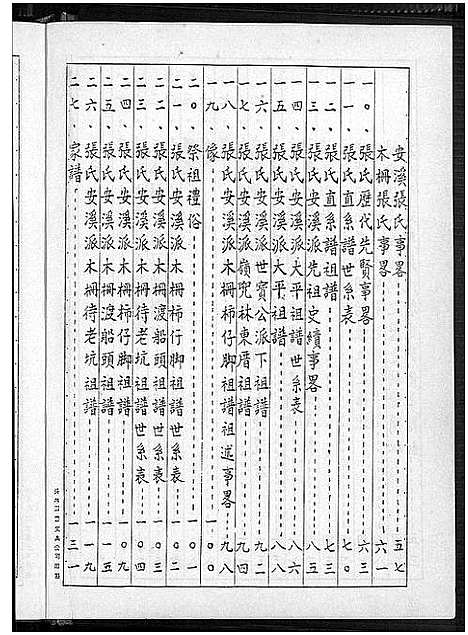 安溪張氏事畧 五七
木柵張氏事畧 六一
一〇、張氏歷代先賢事畧 六三
一一、張氏直系譜世系表 七〇
一二、張氏直系譜祖譜 七三
一三、張氏安溪派先祖史績事畧 八五
一四、張氏安溪派大平祖譜世系表 八六
一五、張氏安溪派大平祖譜 八八
一六、張氏安溪派世賓公派下祖譜 九二
一七、張氏安溪派嶺兜林東厝祖譜 九四
一八、張氏安溪派木柵柿仔脚祖譜祖述事畧 九八
一九、像 一〇〇
二〇、祭祖禮俗 一〇一
二一、張氏安溪派木柵柿仔脚祖譜世系表 一〇二
二二、張氏安溪派木柵渡船頭祖譜世系表 一〇三
二三、張氏安溪派木柵待老坑祖譜世系表 一〇四
二四、張氏安溪派木柵柿仔脚祖譜 一〇九
二五、張氏安溪派木柵渡船頭祖譜 一一五
二六、張氏安溪派木柵待老坑祖譜 一一九
二七、家譜 一三一